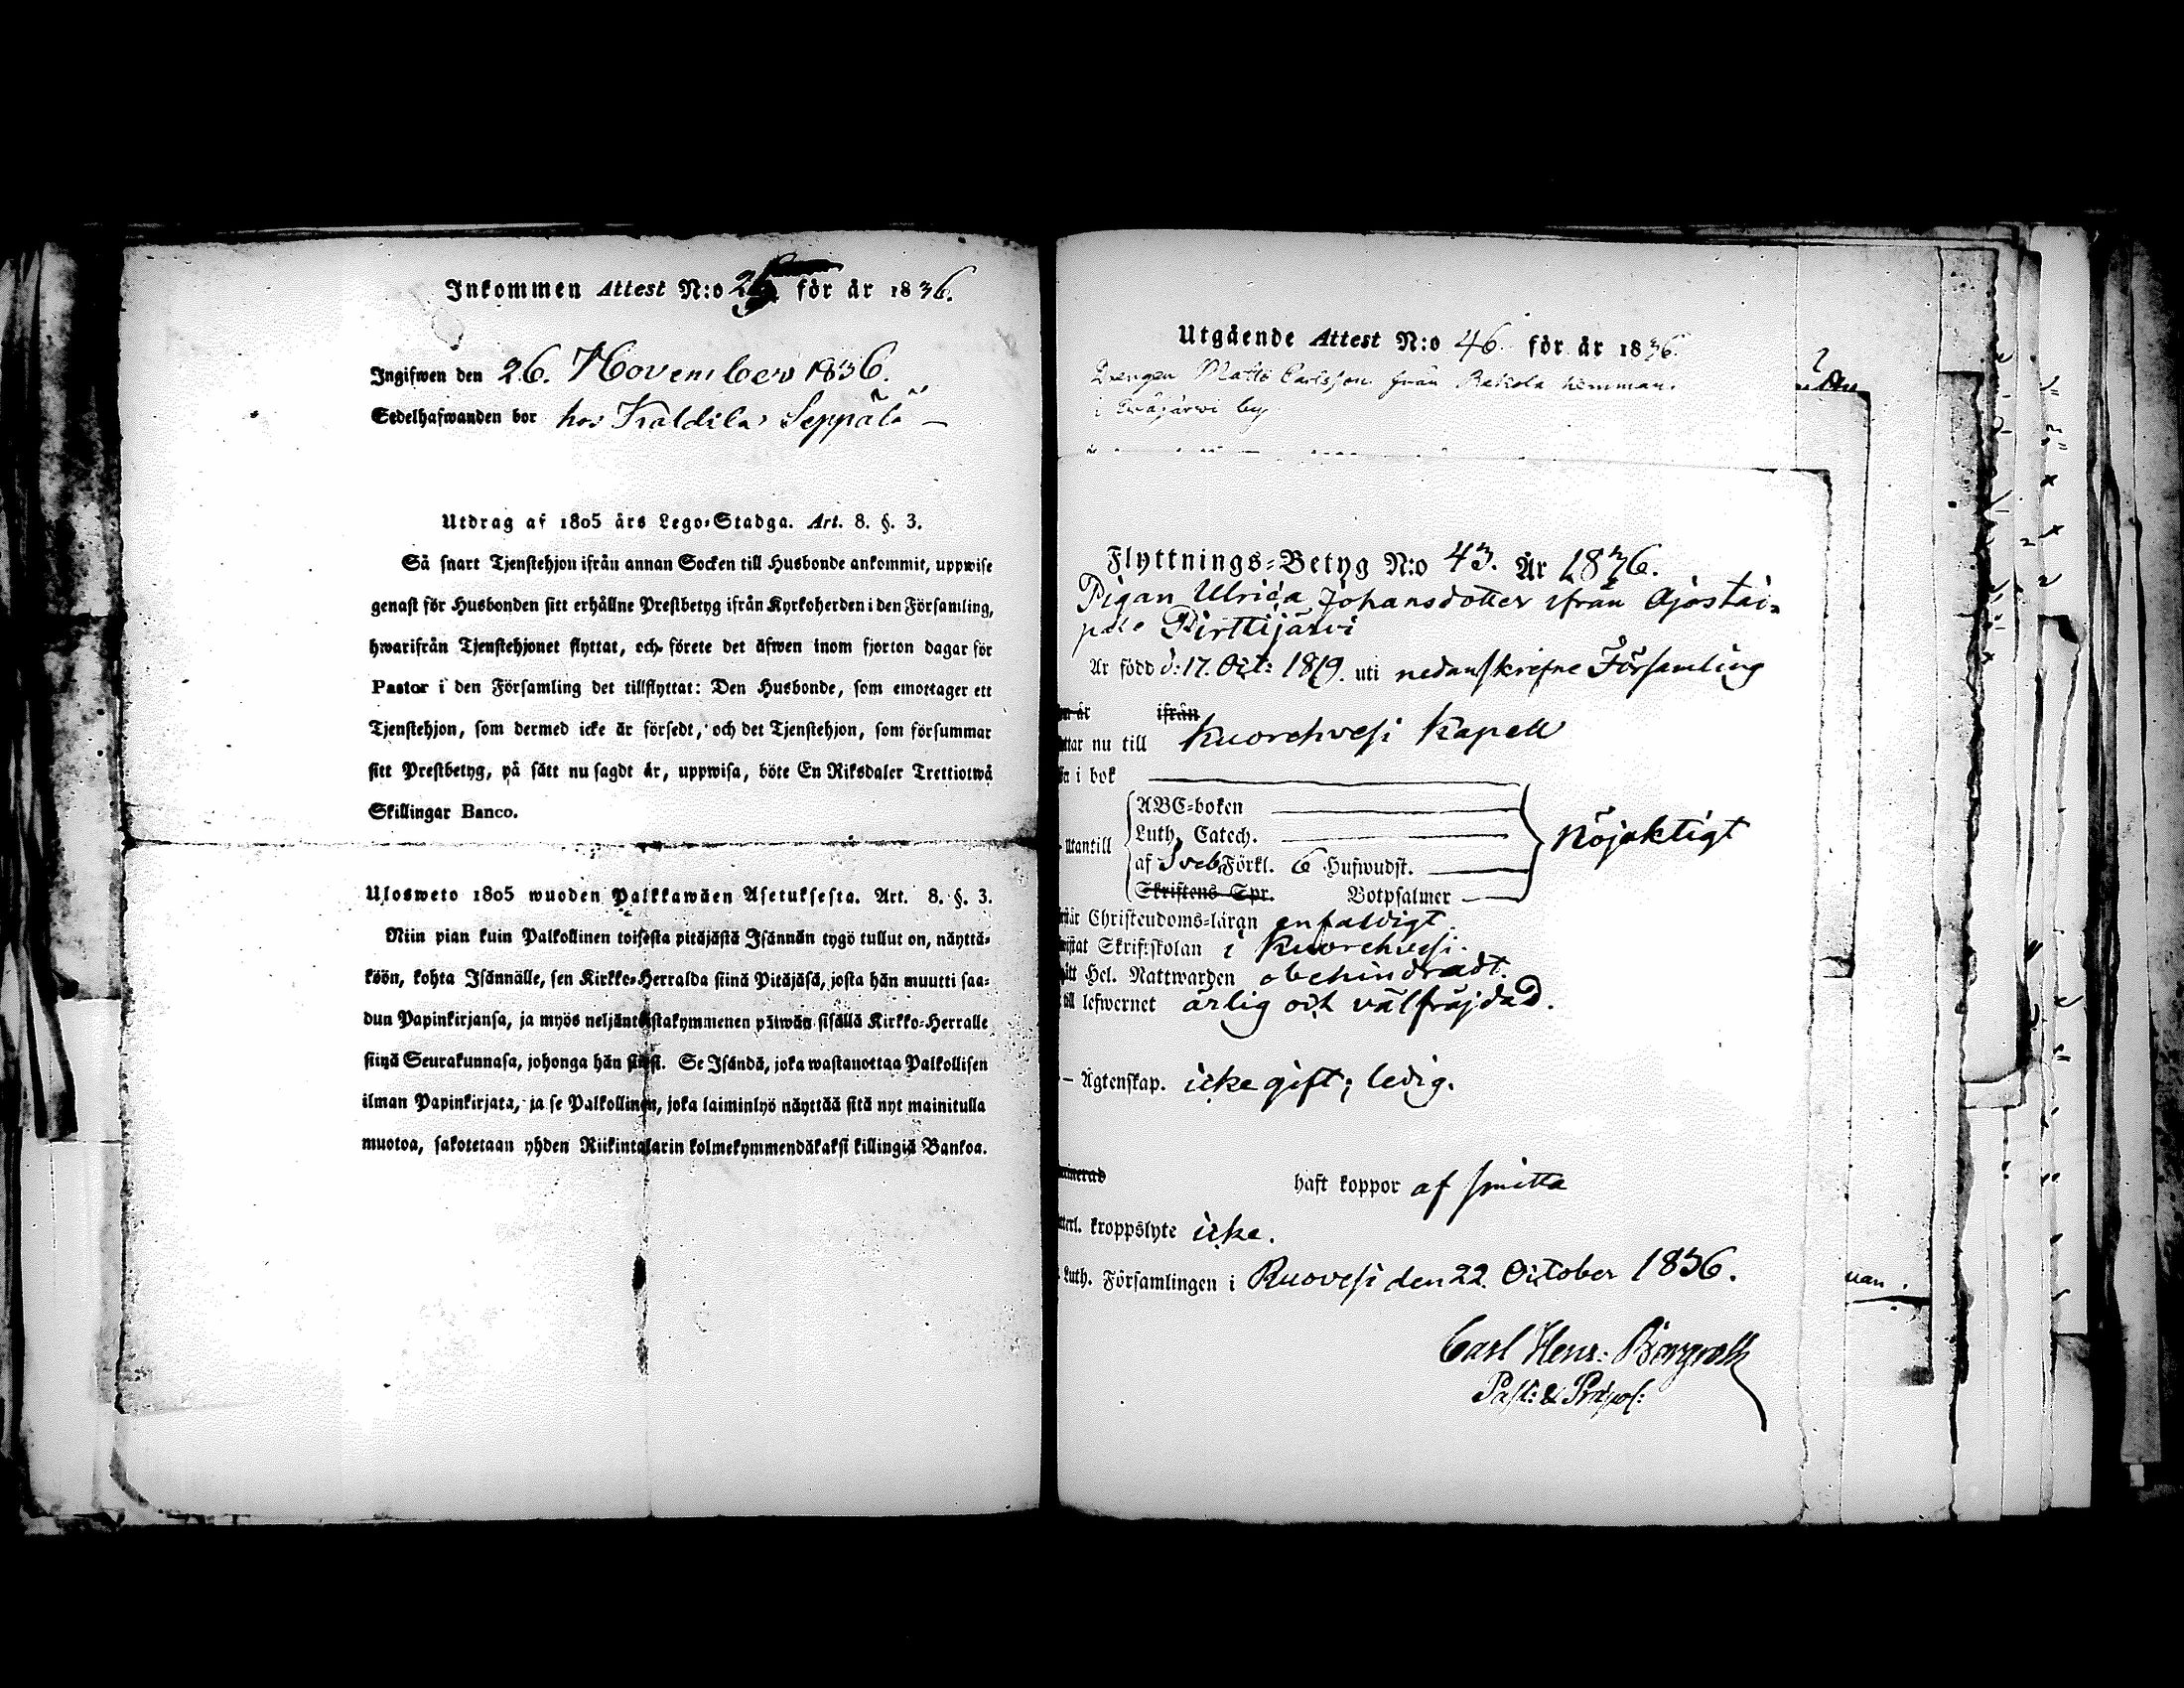 Inkommen Attest N:o för år 1836.
Ingifwen den 26. November 1836.
Sedelhafwanden bor hos Seppälä —
Utdrag af 1805 års Lego-Stadga. Art. 8. §. 3.
Så snart Tjenstehjon ifrån annan Socken till Husbonde ankommit, uppwise
genast för Husbonden sitt erhållne Prestbetyg ifrån Kyrkoherden i den Församling,
hwarifrån Tjenstehjonet flyttat, och förete det äfwen inom fjorton dagar för
Pastor i den Församling det tillflyttat: Den Husbonde, som emottager ett
Tjenstehjon, som dermed icke är försedt, och det Tjenstehjon, som försummar
sitt Prestbetyg, på sätt nu sagdt är, uppwisa, böte En Riksdaler Trettiotwå
Skillingar Banco.
Ulosweto 1805 wuoden Palkkawäen Asetuksesta. Art. 8. §. 3.
Niin pian kuin Palkollinen toisesta pitäjästä Isännän tygö tullut on, näyttä-
köön, kohta Isännälle, sen Kirkko-Herralda siinä Pitäjäsä, josta hän muutti saa-
dun Papinkirjansa, ja myös neljäntoistakymmenen päiwän sisällä Kirkko-Herralle
siinä Seurakunnasa, johonga hän siirsi. Se Isändä, joka wastanottaa Palkollisen
ilman Papinkirjata, ja se Palkollinen, joka laiminlyö näyttää sitä nyt mainitulla
muotoa, sakotetaan yhden Riikintalarin kolmekymmendäkaksi killingiä Bankoa.
Utgående Attest N:o 46. för år 1836.
Drengen Matts Carlsson från hemman
i by
Flyttnings-Betyg N:o 43. År 1836.
Pigan Ulrica Johansdotter ifrån Ajostai-
pale Pirttijärvi
Är född d: 17. Oct: 1819. uti nedanskrefne Församling
ifrån
nu till Kuorehvesi Kapell
i bok
ABC-boken
Luth. Catech.
utantill nöjaktigt
af Sveb. Förkl. 6 Hufwudst.
Skriftens Spr. Botpsalmer
Christendoms-läran enfaldigt
Skriftskolan i Kuorehvesi.
Hel. Nattwarden obehindradt.
till lefwernet ärlig och välfräjdad.
— Ägtenskap. icke gift; ledig.
haft koppor af smitta
kroppslyte icke.
Luth. Församlingen i Ruovesi den 22. October 1836.
Carl Henr: Bergroth
Past: & Præpos: